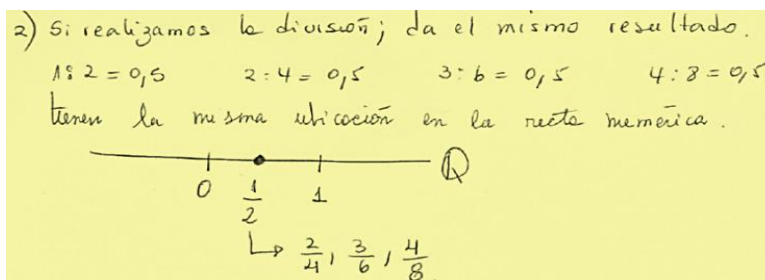 2) Si realizamos la división; da el mismo resultado.
1:2 = 0,5 2:4 = 0,5 3:6 = 0,5 4:8 = 0,5
tienen la misma ubicación en la recta numérica.
0 1/2 1 Q
↳ 2/4, 3/6, 4/8